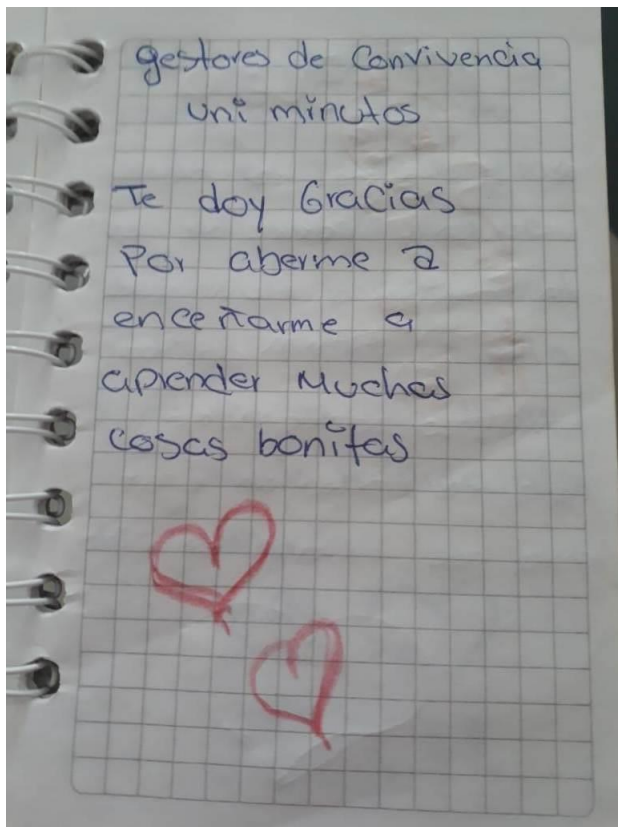 gestores de Convivencia
uni minutos
Te doy Gracias
Por aberme a
enceñarme a
aprender Muchas
cosas bonitas